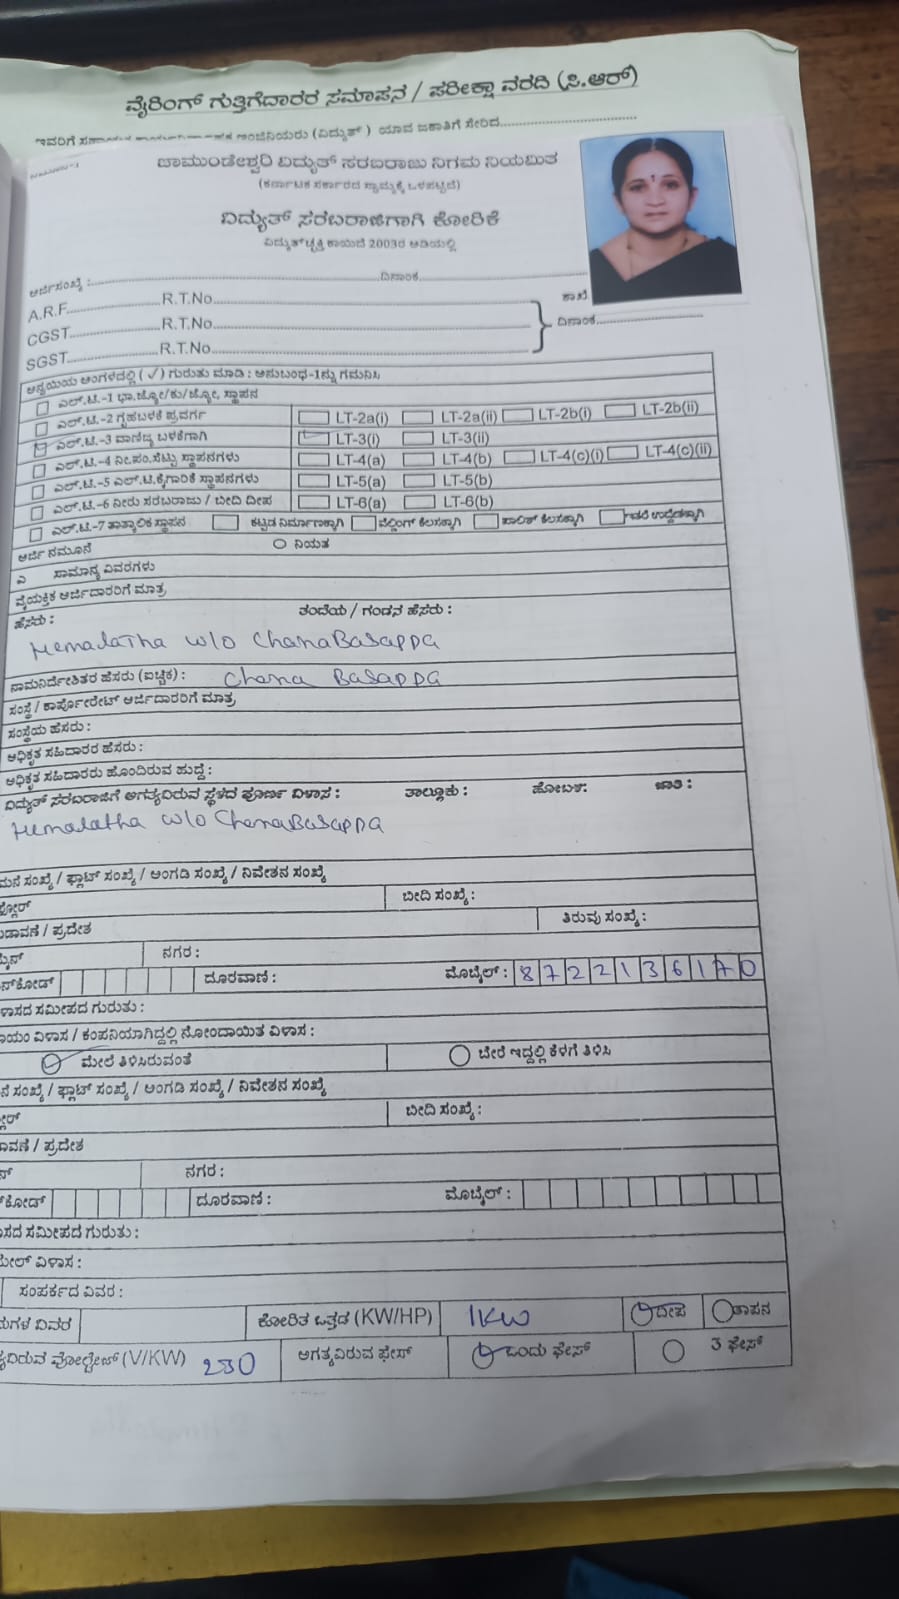 ವೈರಿಂಗ್ ಗುತ್ತಿಗೆದಾರರ ಸಮಾಪನ / ಪರೀಕ್ಷಾ ವರದಿ (ಸಿ.ಆರ್)
(ವಿದ್ಯುತ್) ಯಾವ ಜಕಾತಿಗೆ ಸೇರಿದ
ಚಾಮುಂಡೇಶ್ವರಿ ವಿದ್ಯುತ್ ಸರಬರಾಜು ನಿಗಮ ನಿಯಮಿತ
(ಕರ್ನಾಟಕ ಸರ್ಕಾರದ ಸ್ವಾಮ್ಯಕ್ಕೆ ಒಳಪಟ್ಟಿದೆ)
ವಿದ್ಯುತ್ ಸರಬರಾಜಿಗಾಗಿ ಕೋರಿಕೆ
ವಿದ್ಯುತ್‌ಚ್ಛಕ್ತಿ ಕಾಯಿದೆ 2003ರ ಅಡಿಯಲ್ಲಿ
ಅರ್ಜಿಸಂಖ್ಯೆ : ದಿನಾಂಕ
ಶಾಖೆ
A.R.F R.T.No
CGST R.T.No ದಿನಾಂಕ
SGST R.T.No
ಅನ್ವಯಿಯ ಅಂಗಳದಲ್ಲಿ (✓) ಗುರುತು ಮಾಡಿ : ಅನುಬಂಧ-1ನ್ನು ಗಮನಿಸಿ
ಎಲ್.ಟಿ.-1 ಭಾ.ಜ್ಯೋ/ಕು/ಜ್ಯೋ, ಸ್ಥಾಪನ
ಎಲ್.ಟಿ.-2 ಗೃಹಬಳಕೆ ಪ್ರವರ್ಗ LT-2a(i) LT-2a(ii) LT-2b(i) LT-2b(ii)
ಎಲ್.ಟಿ.-3 ವಾಣಿಜ್ಯ ಬಳಕೆಗಾಗಿ LT-3(i) LT-3(ii)
ಎಲ್.ಟಿ.-4 ನೀ.ಪಂ.ಸೆಟ್ಟು ಸ್ಥಾಪನಗಳು LT-4(a) LT-4(b) LT-4(c)(i) LT-4(c)(ii)
ಎಲ್.ಟಿ.-5 ಎಲ್.ಟಿ.ಕೈಗಾರಿಕೆ ಸ್ಥಾಪನಗಳು LT-5(a) LT-5(b)
ಎಲ್.ಟಿ.-6 ನೀರು ಸರಬರಾಜು / ಬೀದಿ ದೀಪ LT-6(a) LT-6(b)
ಎಲ್.ಟಿ.-7 ತಾತ್ಕಾಲಿಕ ಸ್ಥಾಪನ ಕಟ್ಟಡ ನಿರ್ಮಾಣಕ್ಕಾಗಿ ವೆಲ್ಡಿಂಗ್ ಕೆಲಸಕ್ಕಾಗಿ ಪಾಲಿಶ್ ಕೆಲಸಕ್ಕಾಗಿ ಇತರೆ ಉದ್ದೇಶಕ್ಕಾಗಿ
ಅರ್ಜಿ ನಮೂನೆ ನಿಯತ
ಎ ಸಾಮಾನ್ಯ ವಿವರಗಳು
ವೈಯಕ್ತಿಕ ಅರ್ಜಿದಾರರಿಗೆ ಮಾತ್ರ
ಹೆಸರು : ತಂದೆಯ / ಗಂಡನ ಹೆಸರು :
Hemalatha w/o ChanaBasappa
ನಾಮನಿರ್ದೇಶಿತರ ಹೆಸರು (ಐಚ್ಛಿಕ) : Chana Basappa
ಸಂಸ್ಥೆ / ಕಾರ್ಪೋರೇಟ್ ಅರ್ಜಿದಾರರಿಗೆ ಮಾತ್ರ
ಸಂಸ್ಥೆಯ ಹೆಸರು :
ಅಧಿಕೃತ ಸಹಿದಾರರ ಹೆಸರು :
ಅಧಿಕೃತ ಸಹಿದಾರರು ಹೊಂದಿರುವ ಹುದ್ದೆ :
ವಿದ್ಯುತ್ ಸರಬರಾಜಿಗೆ ಅಗತ್ಯವಿರುವ ಸ್ಥಳದ ಪೂರ್ಣ ವಿಳಾಸ : ತಾಲ್ಲೂಕು : ಹೋಬಳಿ: ಜಾತಿ :
Hemalatha w/o ChanaBasappa
ಮನೆ ಸಂಖ್ಯೆ / ಫ್ಲಾಟ್ ಸಂಖ್ಯೆ / ಅಂಗಡಿ ಸಂಖ್ಯೆ / ನಿವೇಶನ ಸಂಖ್ಯೆ
ಫ್ಲೋರ್ ಬೀದಿ ಸಂಖ್ಯೆ :
ಬಡಾವಣೆ / ಪ್ರದೇಶ ತಿರುವು ಸಂಖ್ಯೆ :
ನಗರ :
ನ್‌ಕೋಡ್ ದೂರವಾಣಿ : ಮೊಬೈಲ್ : 8722136170
ಳಾಸದ ಸಮೀಪದ ಗುರುತು :
ಾಯಂ ವಿಳಾಸ / ಕಂಪನಿಯಾಗಿದ್ದಲ್ಲಿ ನೋಂದಾಯಿತ ವಿಳಾಸ :
ಮೇಲೆ ತಿಳಿಸಿರುವಂತೆ ಬೇರೆ ಇದ್ದಲ್ಲಿ ಕೆಳಗೆ ತಿಳಿಸಿ
ನೆ ಸಂಖ್ಯೆ / ಫ್ಲಾಟ್ ಸಂಖ್ಯೆ / ಅಂಗಡಿ ಸಂಖ್ಯೆ / ನಿವೇಶನ ಸಂಖ್ಯೆ
ೋರ್ ಬೀದಿ ಸಂಖ್ಯೆ :
ಾವಣೆ / ಪ್ರದೇಶ
ನಗರ :
ಕೋಡ್ ದೂರವಾಣಿ : ಮೊಬೈಲ್ :
ಸದ ಸಮೀಪದ ಗುರುತು :
ಮೇಲ್ ವಿಳಾಸ :
ಸಂಪರ್ಕದ ವಿವರ :
ುಗಳ ವಿವರ ಕೋರಿತ ಒತ್ತಡ (KW/HP) 1KW ದೀಪ ತಾಪನ
್ಯವಿರುವ ವೋಲ್ಟೇಜ್ (V/KW) 230 ಅಗತ್ಯವಿರುವ ಫೇಸ್ ಒಂದು ಫೇಸ್ 3 ಫೇಸ್